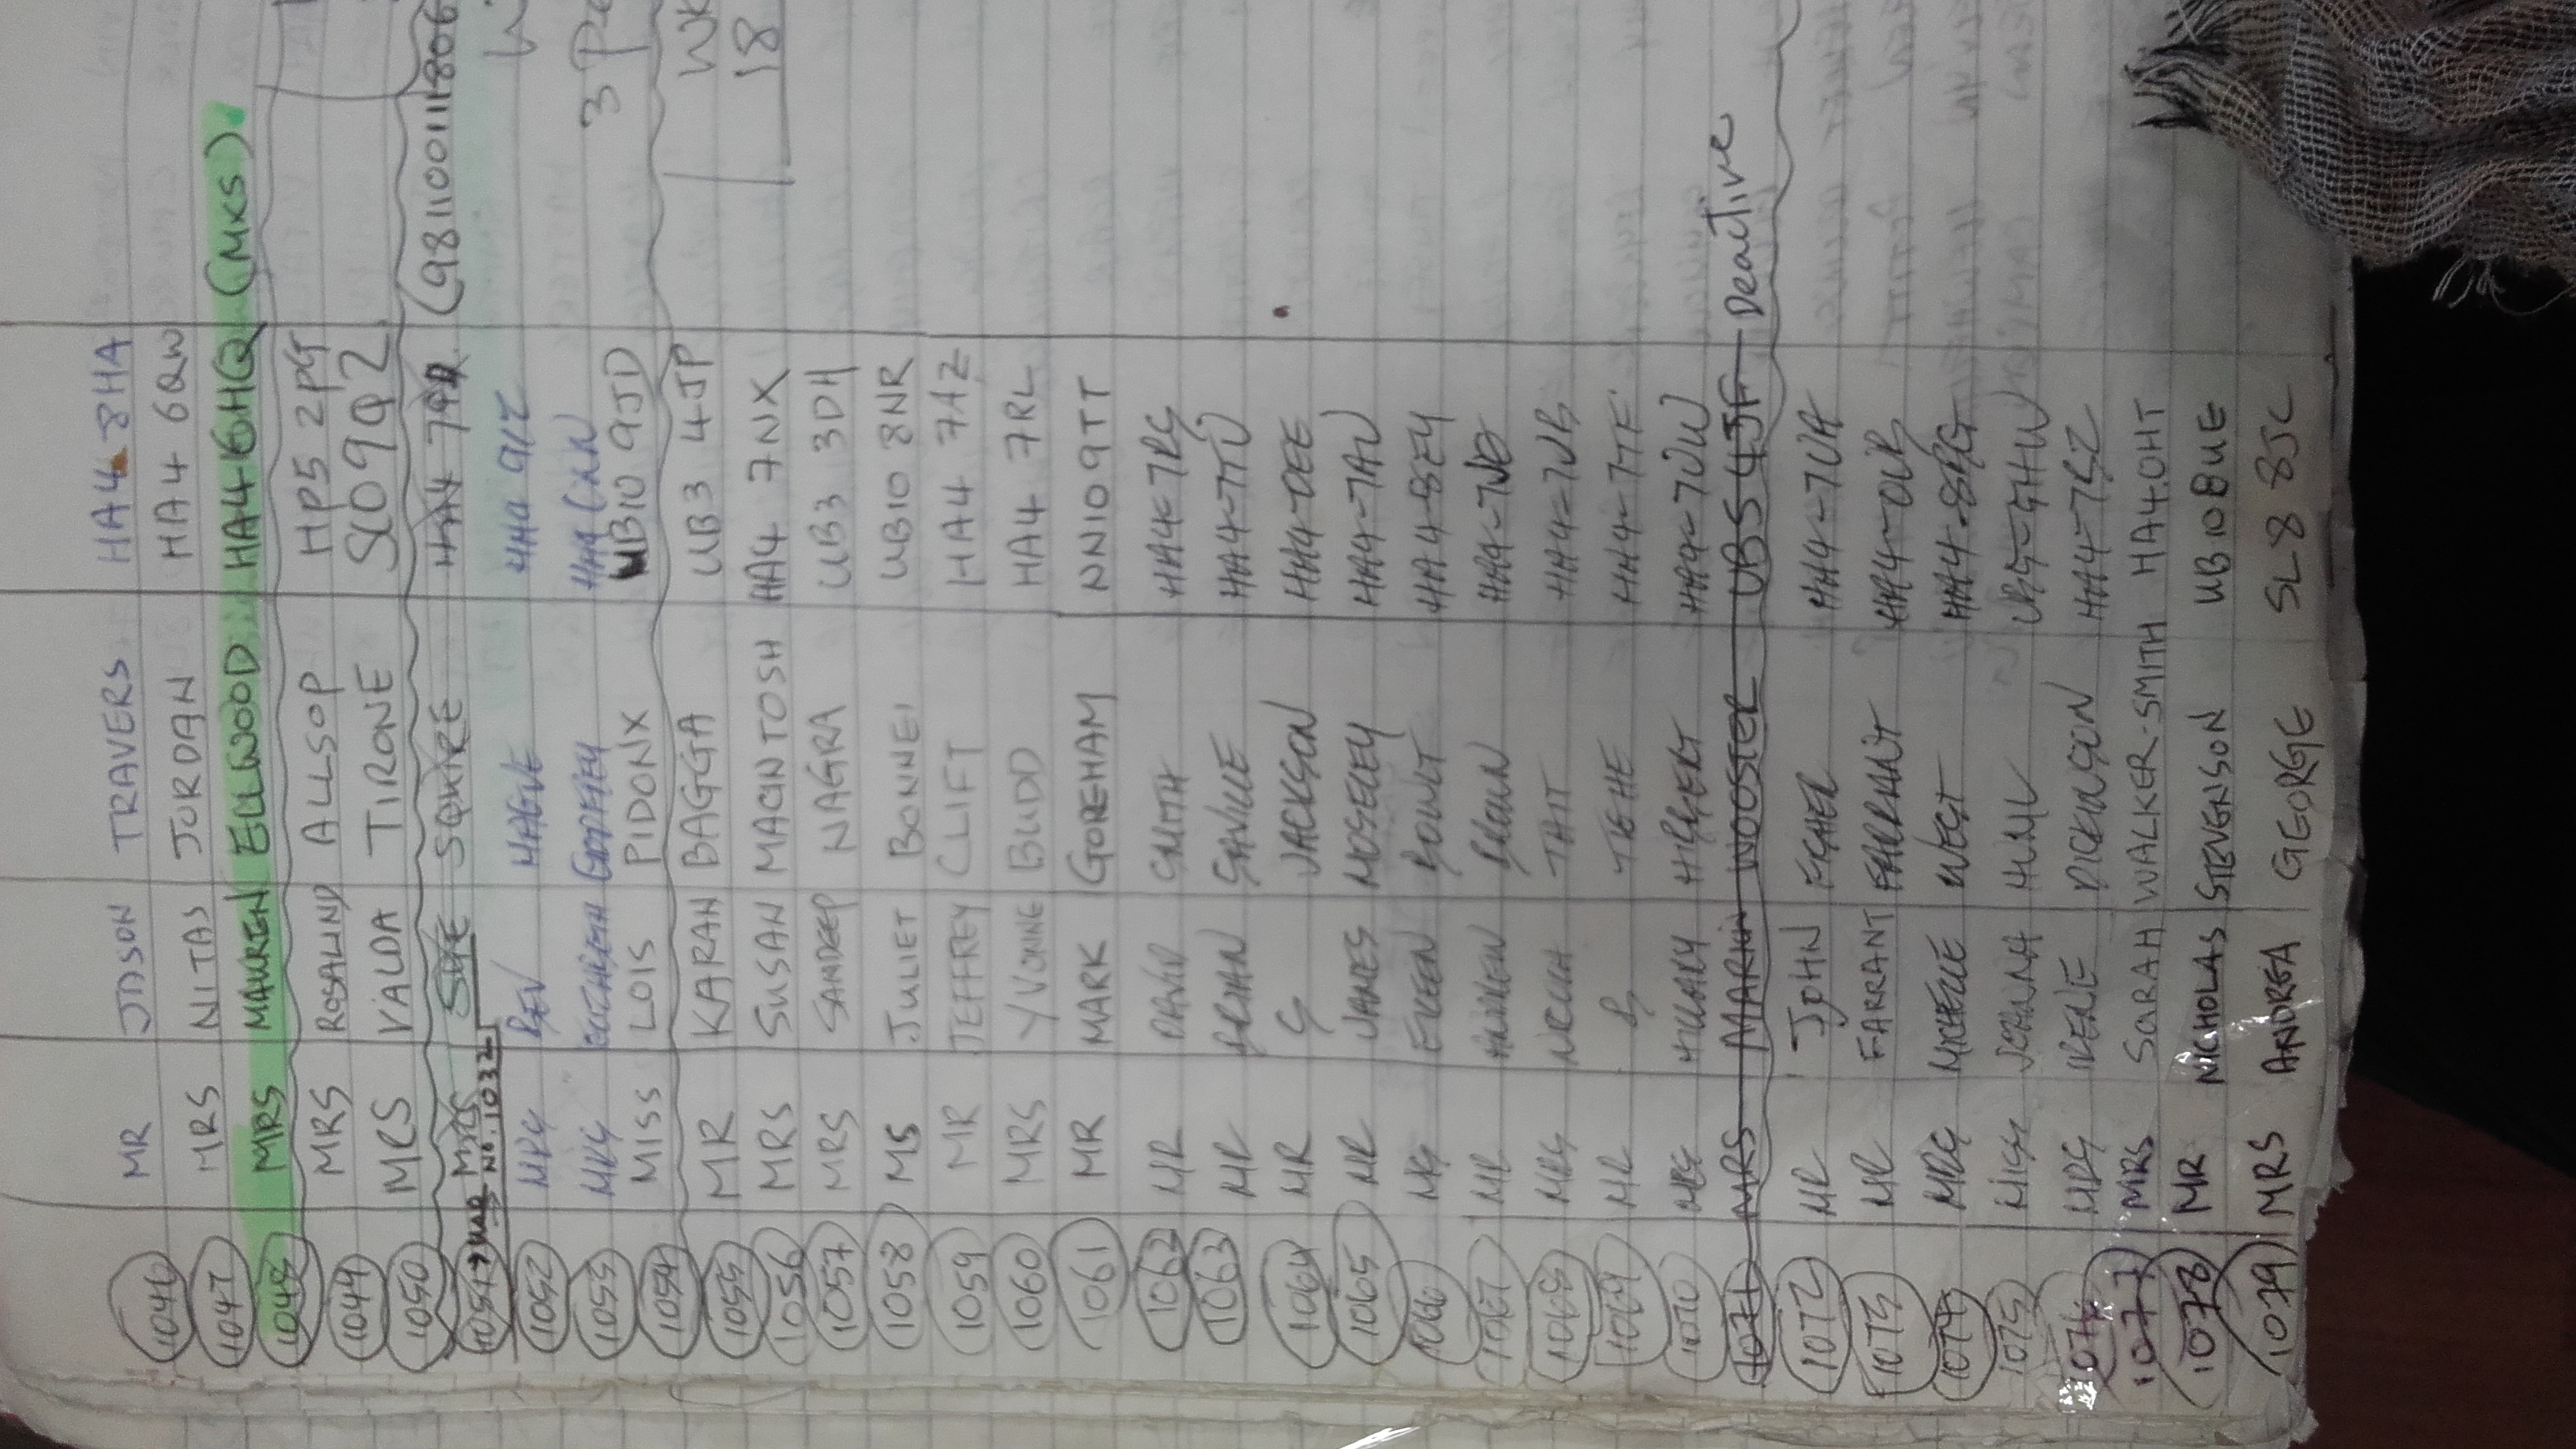 1046 MR JASON TRAVERS HA4 8HA
1047 MRS NITAS JORDAN HA4 6QW
1048 MRS MAUREN ELLWOOD HA4 6HQ (MKS).
1049 MRS ROSALIND ALLSOP HP5 2PG
1050 MRS VALDA TIRONE SL0 9QZ
1051 MRS SUE SQUIRE HA4 (981100111806
No. 1032
1052 MRS BEV HAGUE
1053 MRS ELIZABETH GODFREY 3
1054 MISS LOIS PIDONX UB10 9JD
1055 MR KARAN BAGGA UB3 4JP
1056 MRS SUSAN MACINTOSH HA4 7NX 18
1057 MRS SANDEEP NAGRA UB3 3DH
1058 MS JULIET UB10 8NR
1059 MR JEFFREY CLIFT HA4 7AZ
1060 MRS YVONNE BUDD HA4 7RL
1061 MR MARK GOREHAM NN10 9TT
1062 MR DAVID SMITH HA4-7RS
1063 MR BRIAN SAVILLE HA4-7TU
1064 MR S JACKSON HA4-0EE
1065 MR JAMES MOSELEY HA4-7AU
1066 MS EILEEN BOWLT HA4-8EY
1067 MR ANDREW BROWN
1068 MRS NICOLA TAIT HA4-7UB
1069 MR B TIGHE HA4-7TF
1070 MRS HILLARY HIBBERT HA4-7UW
1071 MRS WOOSTER UB5 4JF Deactive
1072 MR JOHN FISHER HA4-7UA
1073 MR FARRANT FARRANT HA4-0UB
1074 MRS MICHELLE WEST HA4-8RG
1075 MISS JOANNA UB5-5HW
1076 MRS IRENE DICKINSON HA4-7BZ
1077 MRS SARAH WALKER-SMITH HA4.0HT
1078 MR NICHOLAS STEVENSON UB10 8UE
1079 MRS ANDREA GEORGE SL8 8JC